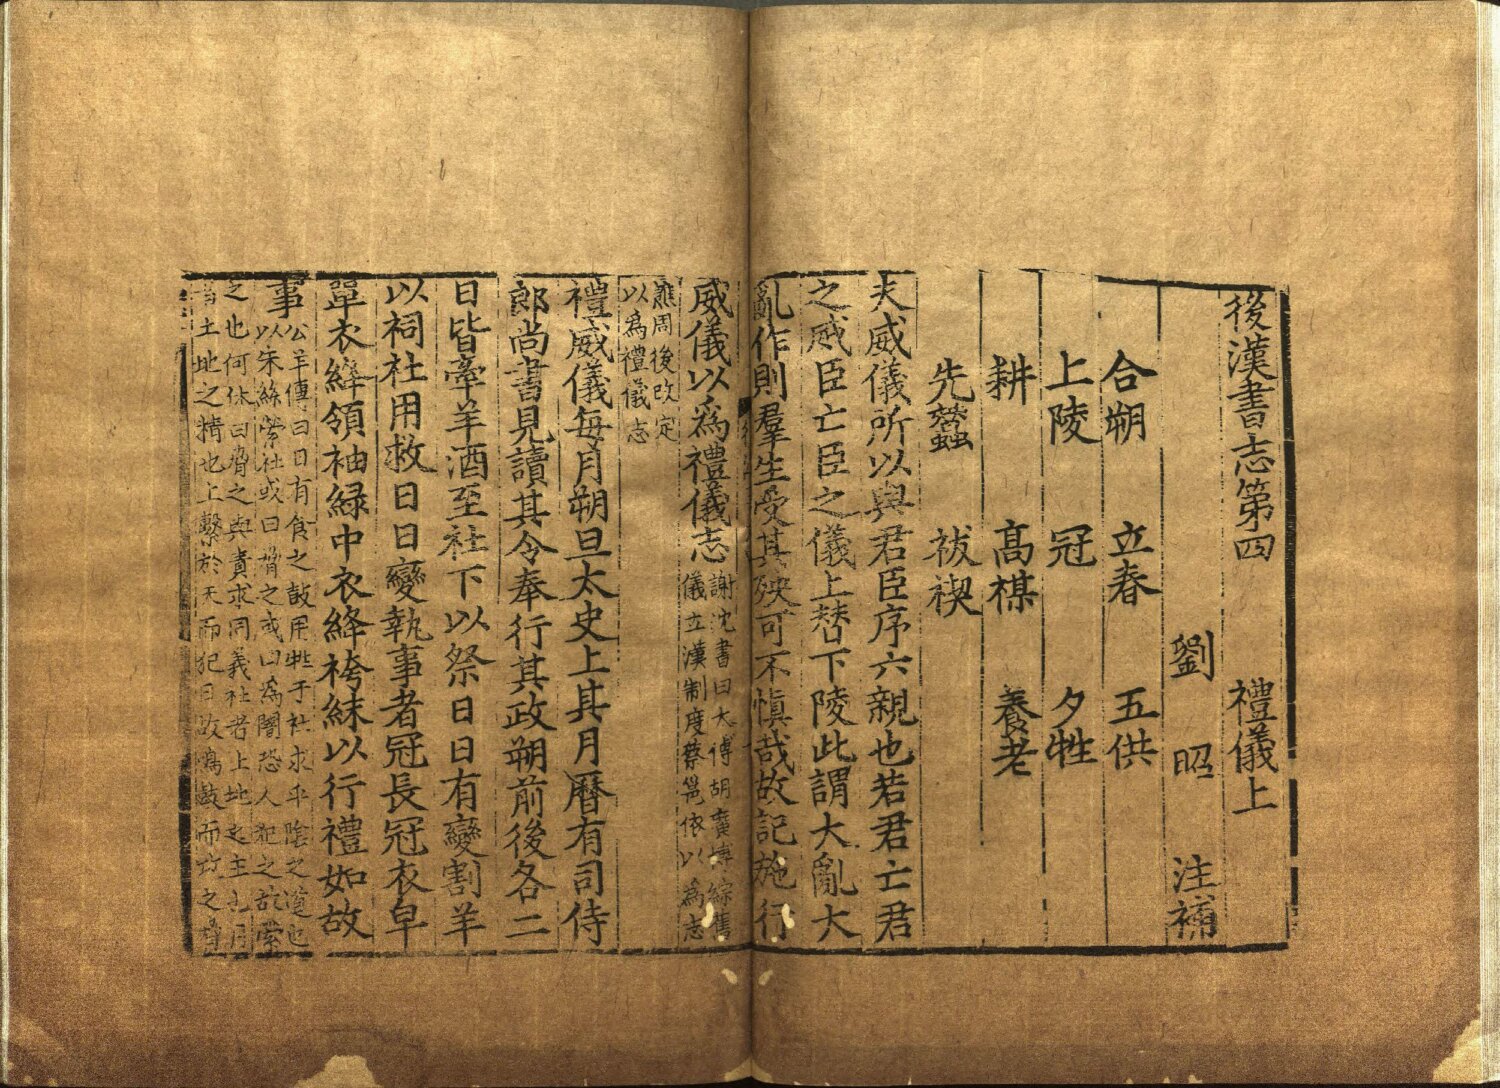 後漢書志第四 禮儀上
劉 昭 注補
合朔 立春 五供
上陵 冠 夕牲
耕 高禖 養老
先蠶 祓禊
夫威儀所以與君臣序六親也若君亡君
之威臣亡臣之儀上替下陵此謂大亂大
亂作則羣生受其殃可不慎哉故記施行
威儀以爲禮儀志
謝沈書曰太傅胡廣博綜舊
儀立漢制度蔡邕依以爲志
譙周後改定
以爲禮儀志
禮威儀每月朔旦太史上其月曆有司侍
郎尚書見讀其令奉行其政朔前後各二
日皆牽羊酒至社下以祭日日有變割羊
以祠社用救日日變執事者冠長冠衣皁
單衣絳領袖緑中衣絳袴絑以行禮如故
事
公羊傳曰日有食之鼓用牲于社求乎陰之道也
以朱絲縈社或曰脅之或曰爲闇恐人犯之故縈
之也何休曰脅之與責求同義社者土地之主也月
者土地之精也上繫於天而犯日故鳴鼓而攻之脅